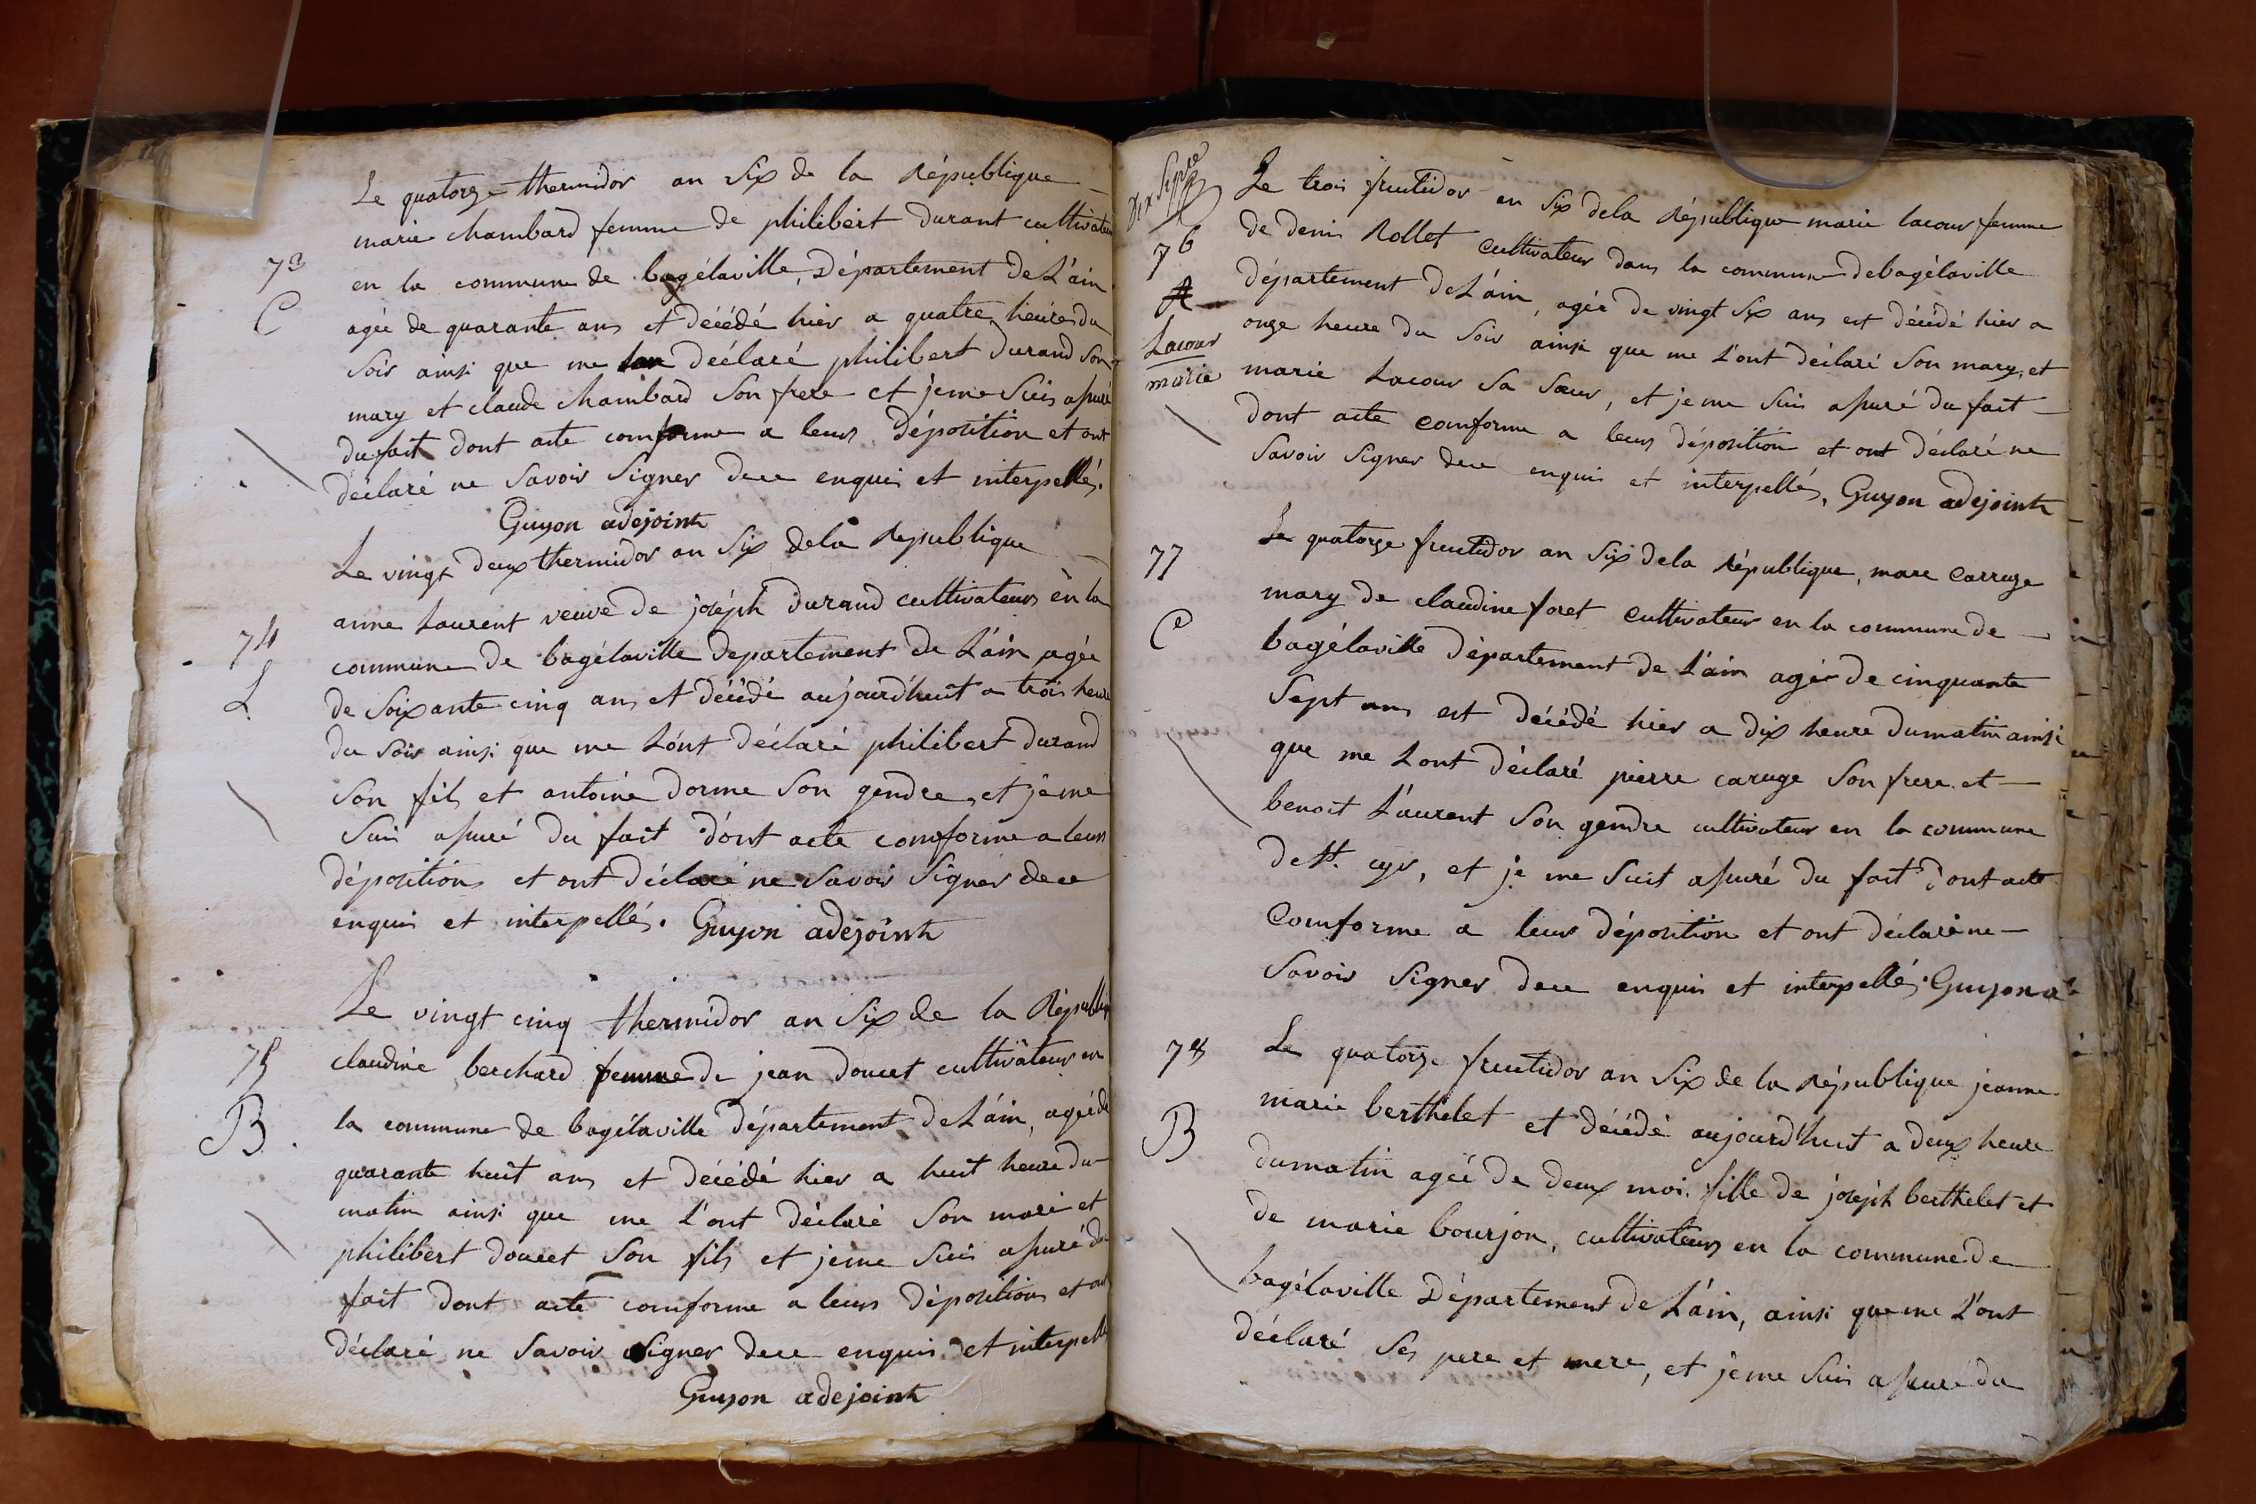 Le quatorze thermidor an Six de la République
marie chambard femme de philibert durant cultivateur
73
en la commune de bagélaville, Département de L'ain
C
agée de quarante ans et décédé hier a quatre heure du
Soir ainsi que me lon déclaré philibert durand son
mary et claude chambard Son frere et je me Suis asuré
du fait dont acte comforme a leurs déposition et ont
déclaré ne Savoir Signer de ce enquis et interpellés.
Guyon adejoint
Le vingt deux thermidor an Six de la Republique
anne Laurent veuve de joseph durand cultivateurs en la
74
commune de bagélaville departement de L'ain agée
L
de Soixante cinq ans et décédé aujourd'huit a trois heure
du Soir ainsi que me L'ont déclaré philibert durand
Son fils et antoine dorme Son gendre, et je me
Suis asuré du fait dont acte comforme a leurs
dépositions et ont déclaré ne Savoir Signer de ce
enquis et interpellés. Guyon adejoint
Le vingt cinq thermidor an Six de la Républiq
75
claudine berchard femme de jean doucet cultivateur en
B.
la commune de bagélaville département de L'ain, agée de
quarante huit ans et décédé hier a huit heure du
matin ainsi que me l'ont déclaré Son mari et
philibert doucet Son fils et je me Suis asuré du
fait dont acte comforme a leurs dépositions et ont
déclaré ne Savoir Signer de ce enquis et interpellé
Guyon adejoint
Dix Sept
76
Lacour
marie
Le trois fructidor en Six de la République marie lacour femme
de denis Rollet cultivateur dans la commune de bagélaville
département de L'ain, agée de vingt Six ans est décédé hier a
onze heure du Soir ainsi que me L'ont déclaré Son mary, et
marie Lacour Sa Sœur, et je me Suis asuré du fait
dont acte comforme a leurs déposition et ont déclaré ne
Savoir Signer de ce enquis et interpellés, Guyon adejoint
77
C
Le quatorze fructidor an Six de la République, marc Carruge
mary de claudine foret cultivateur en la commune de
bagélaville département de L'ain agée de cinquante
Sept ans est décédé hier a dix heure du matin ainsi
que me L'ont déclaré pierre caruge Son frere et
benoit Laurent Son gendre cultivateur en la commune
de St. cyr, et je me Suit asuré du fait dont acte
Comforme a leur déposition et ont déclaré ne
Savoir Signer de ce enquis et interpellés. Guyon a
78
B
Le quatorze fructidor an Six de la République jeanne
marie berthelet et décédé aujourd'huit a deux heure
du matin agée de deux moi. fille de joseph berthelet et
de marie bourjon, cultivateurs en la commune de
bagélaville Département de L'ain, ainsi que me L'ont
déclaré Ses pere et mere, et je me Suis asuré du